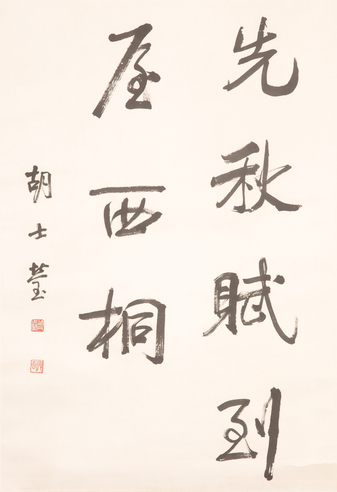 先秋賦到
屋西桐
胡士瑩